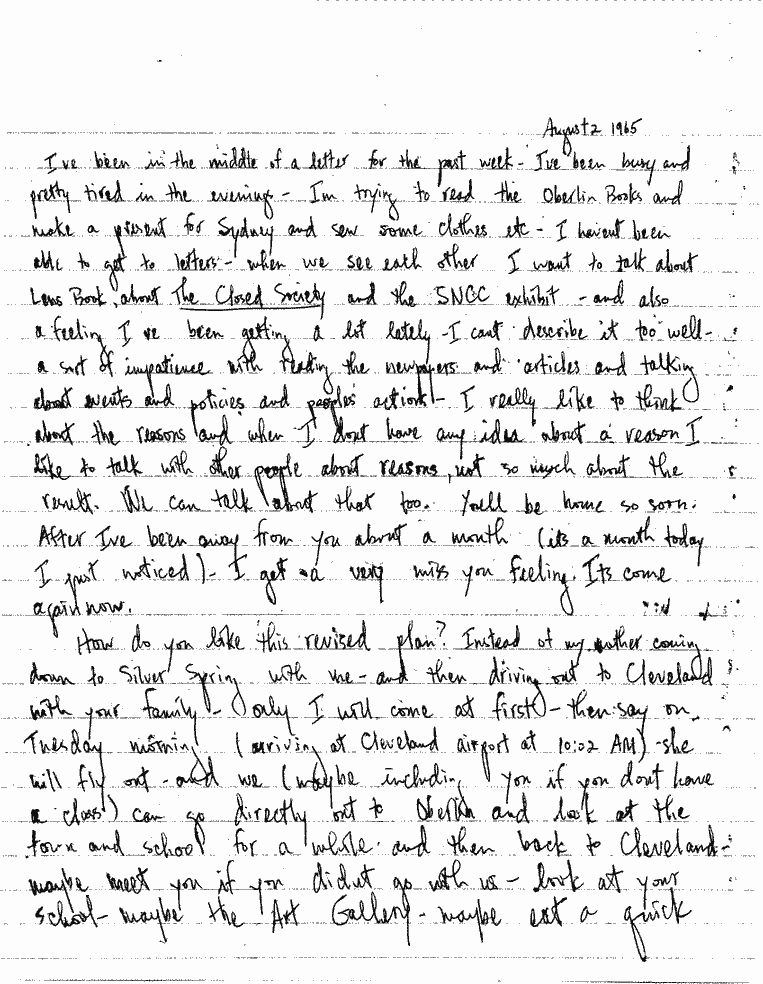 August 2 1965
I've been in the middle of a letter for the past week - I've been busy and
pretty tired in the evening - I'm trying to read the Oberlin Books and
make a present for Sydney and sew some clothes etc - I havent been
able to get to letters - when we see each other I want to talk about
Lens Book, about The Closed Society and the SNCC exhibit - and also
a feeling I've been getting a lot lately - I cant describe it too well -
a sort of impatience with reading the newpapers and articles and talking
about events and policies and peoples actions - I really like to think
about the reasons and when I dont have any idea about a reason I
like to talk with other people about reasons, not so much about the
result. We can talk about that too. Youll be home so soon.
After Ive been away from you about a month (its a month today
I just noticed) - I get a very miss you feeling. Its come
again now.
How do you like this revised plan? Instead of my mother coming
down to Silver Spring with me - and then driving out to Cleveland
with your family - only I will come at first - then say on
Tuesday morning (arriving at Cleveland airport at 10:02 AM) - she
will fly out - and we (maybe including you if you dont have
a class) can go directly out to Oberlin and look at the
town and school for a while and then back to Cleveland -
maybe meet you if you didnt go with us - look at your
school - maybe the Art Gallery - maybe eat a quick